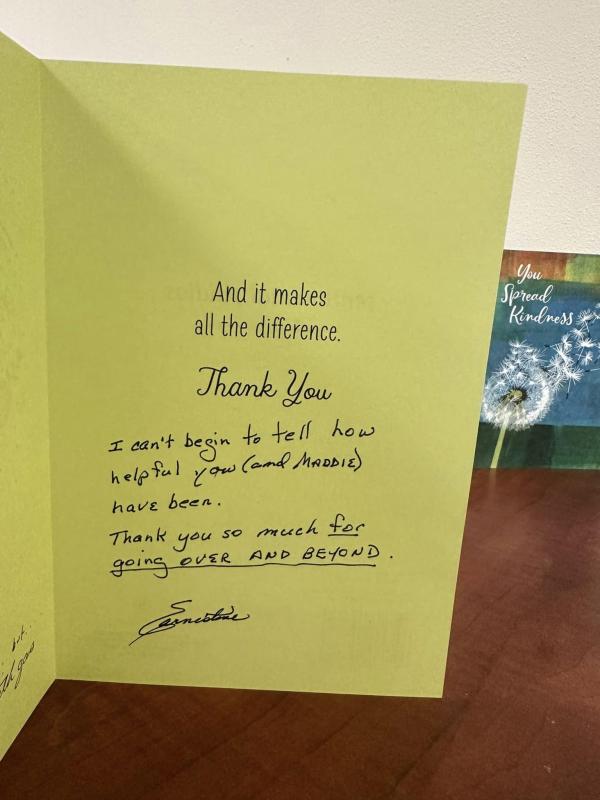 And it makes
all the difference.
Thank You
I can't begin to tell how
helpful you (and MADDIE)
have been.
Thank you so much for
going OVER AND BEYOND.
Earnestine
You
Spread
Kindness
but..